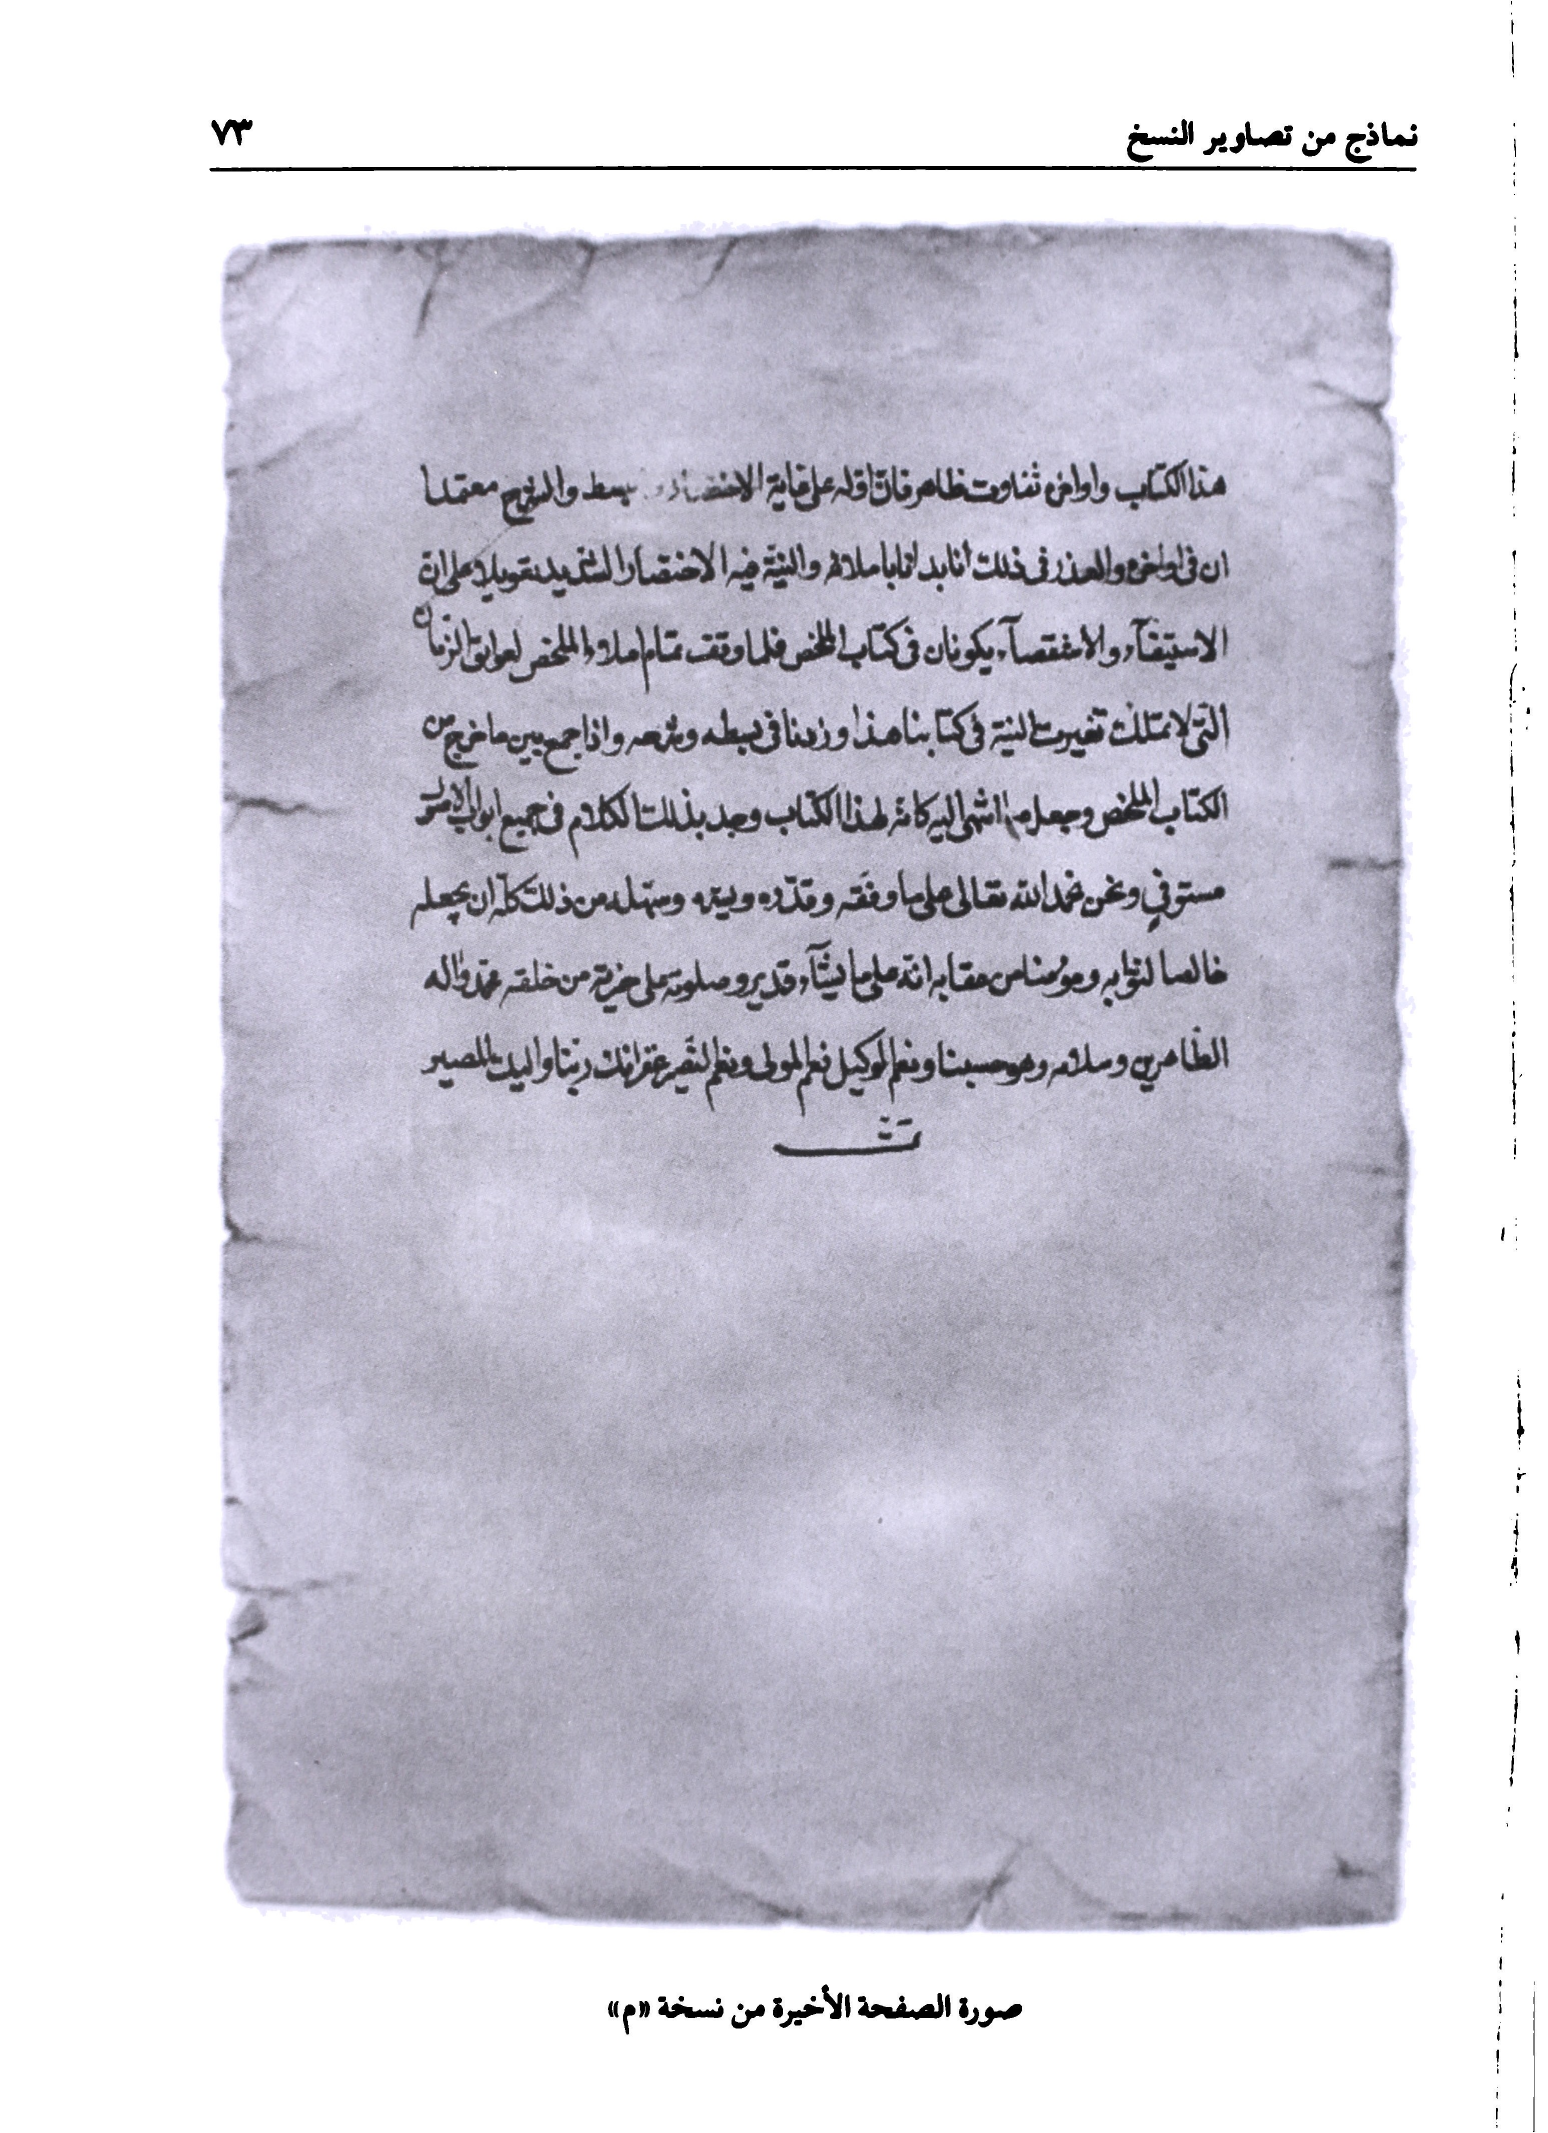 نماذج من تصاوير النسخ ٧٣
هذا الكتاب واواخره تفاوت ظاهر فان اوله على غاية الاختصار بسط والشرح معتمدا
ان فى اواخره والعذر فى ذلك انا بدانا باملائه والنية فيه الاختصار الشديد تعويلا على ان
الاستيفآء والاستقصآء يكونان فى كتاب الملخص فلما وقف تمام املاء الملخص لعوايق الزمان
التى لا تملك تغيرت النية فى كتابنا هذا وزدنا فى بسطه وشرحه واذا جمع بين ما خرج من
الكتاب الملخص وجعل ما انتهى اليه كانه لهذا الكتاب وجد بذلك الكلام فى جميع ابواب الاصول
مستوفي ونحن نحمد الله تعالى على ما وفقه وقدّره ويسّره وسهّله من ذلك كلّه ان يجعله
خالصا لثوابه ومؤمنا من عقابه انّه على ما يشآء قدير وصلوته على خيرته من خلقه محمّد واله
الطّاهرين وسلامه وهو حسبنا ونعم الوكيل نعم المولى ونعم النّصير غفرانك ربّنا واليك المصير
تمت
صورة الصفحة الأخيرة من نسخة «م»